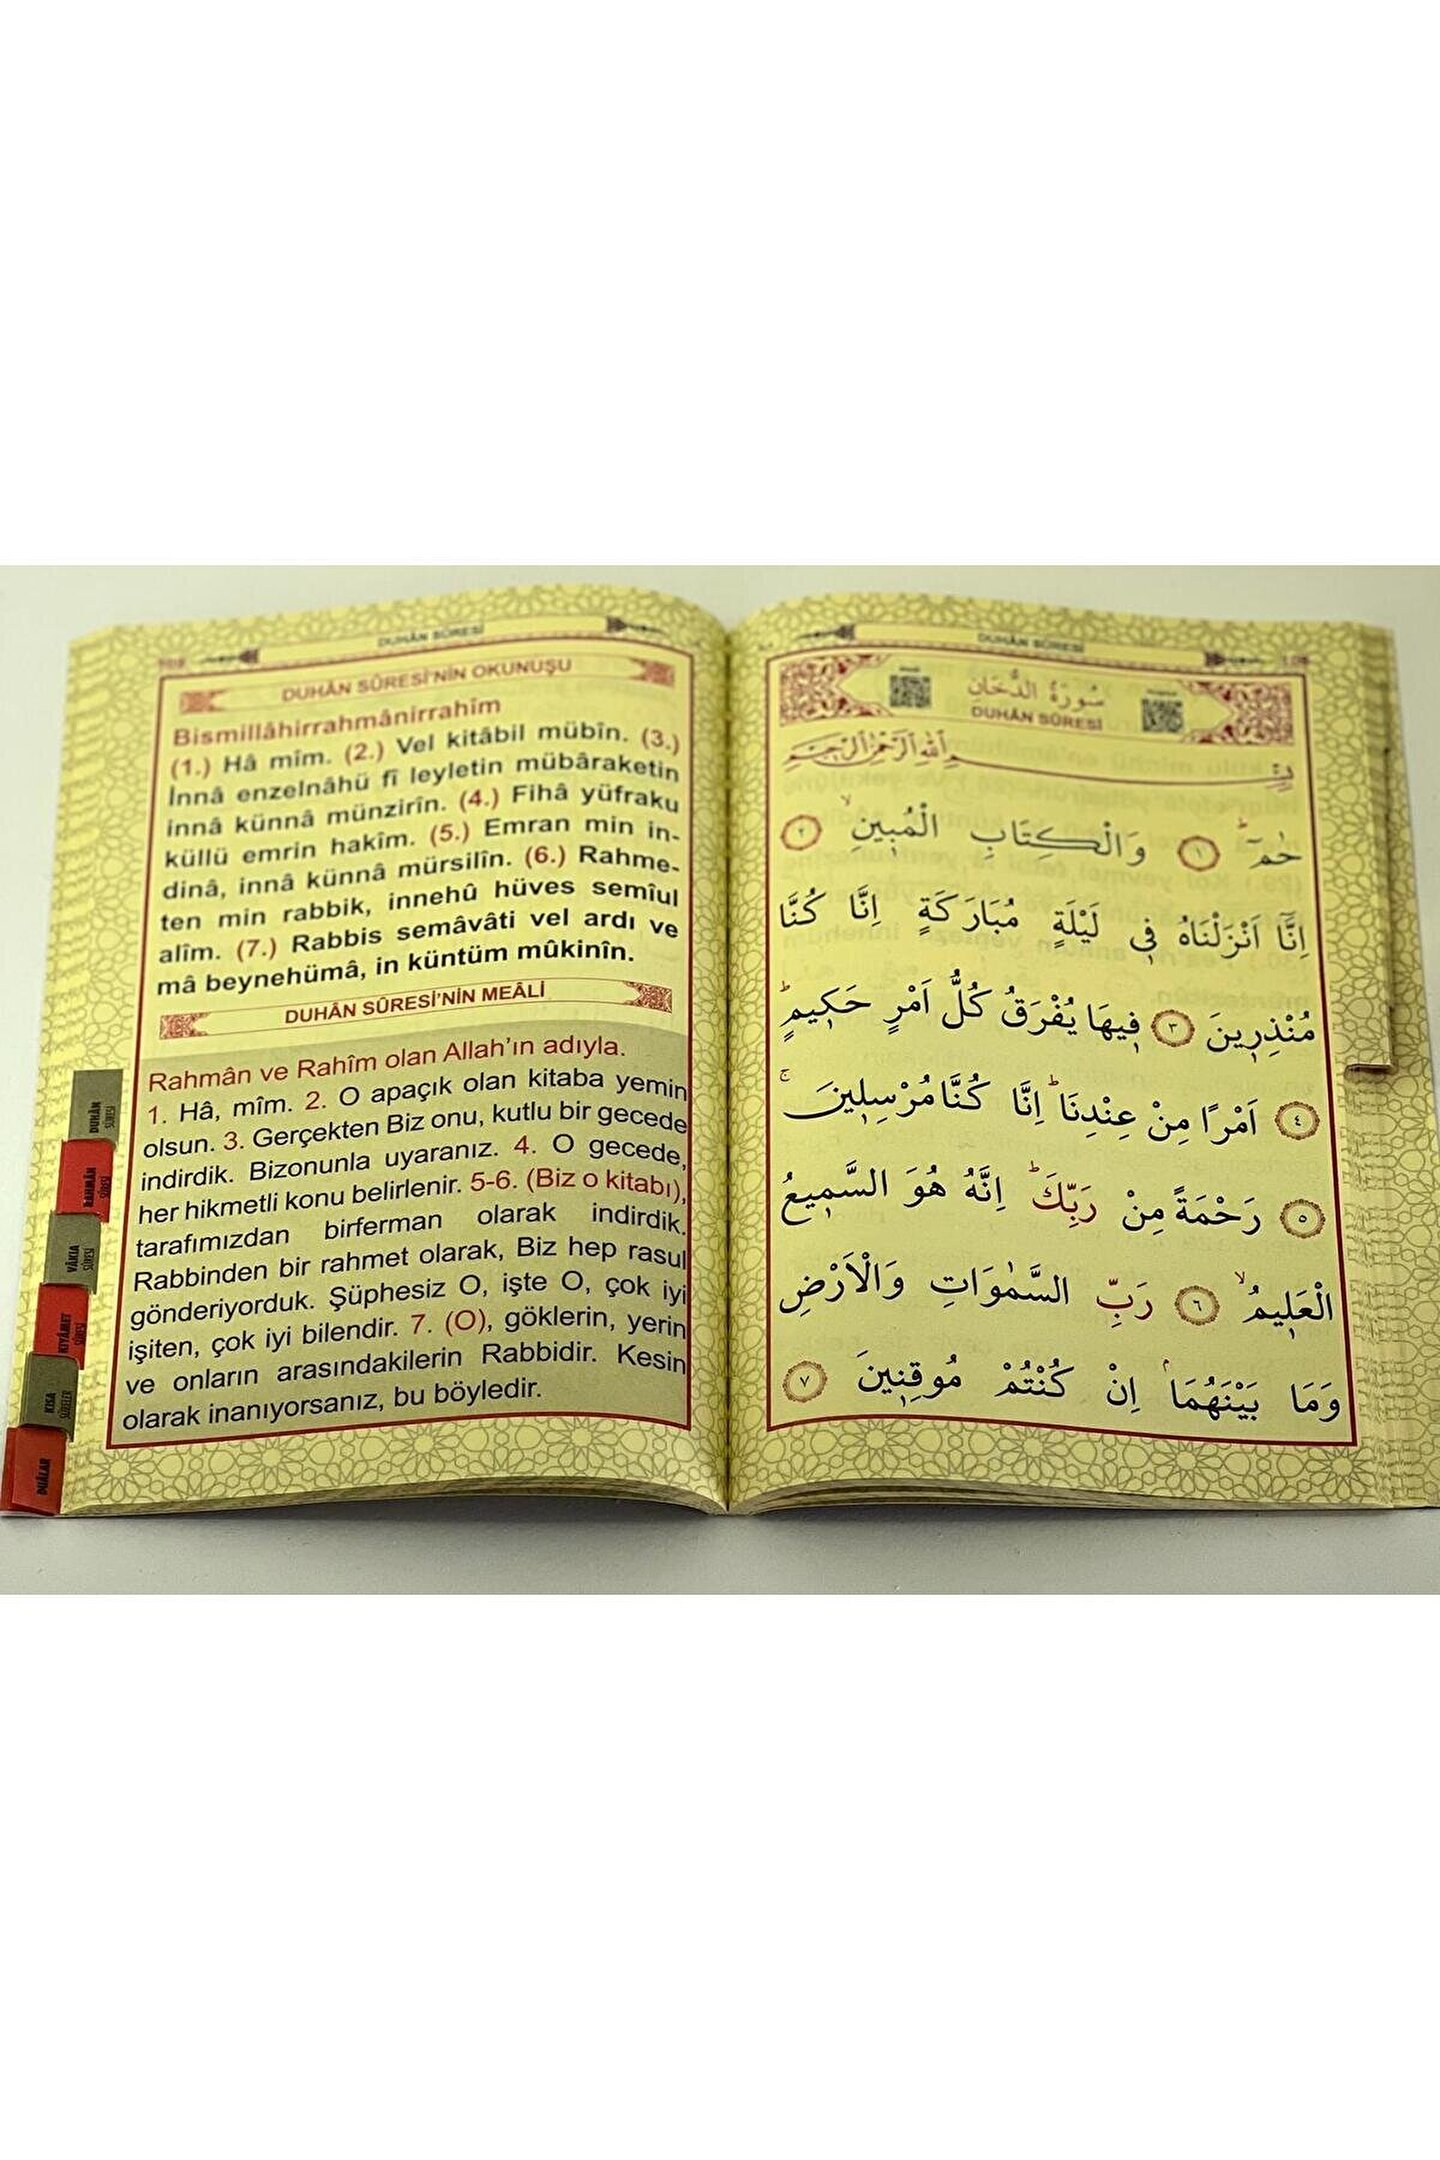 DUHÂN SÛRESİ
DUHÂN SÛRESİ'NİN OKUNUŞU
Bismillâhirrahmânirrahîm
(1.) Hâ mîm. (2.) Vel kitâbil mübîn. (3.)
İnnâ enzelnâhü fî leyletin mübâraketin
innâ künnâ münzirîn. (4.) Fihâ yüfraku
küllü emrin hakîm. (5.) Emran min in-
dinâ, innâ künnâ mürsilîn. (6.) Rahme-
ten min rabbik, innehû hüves semîul
alîm. (7.) Rabbis semâvâti vel ardı ve
mâ beynehümâ, in küntüm mûkinîn.
DUHÂN SÛRESİ'NİN MEÂLİ
Rahmân ve Rahîm olan Allah'ın adıyla.
1. Hâ, mîm. 2. O apaçık olan kitaba yemin
olsun. 3. Gerçekten Biz onu, kutlu bir gecede
indirdik. Bizonunla uyaranız. 4. O gecede,
her hikmetli konu belirlenir. 5-6. (Biz o kitabı),
tarafımızdan birferman olarak indirdik.
Rabbinden bir rahmet olarak, Biz hep rasul
gönderiyorduk. Şüphesiz O, işte O, çok iyi
işiten, çok iyi bilendir. 7. (O), göklerin, yerin
ve onların arasındakilerin Rabbidir. Kesin
olarak inanıyorsanız, bu böyledir.
DUHÂN SÛRESİ
RAHMÂN SÛRESİ
VÂKIA SÛRESİ
KIYÂMET SÛRESİ
KISA SÛRELER
DUÂLAR
DUHÂN SÛRESİ
سُورَةُ الدُّخَانِ
DUHÂN SÛRESİ
بِسْمِ اللّٰهِ الرَّحْمٰنِ الرَّحِيمِ
حٰمٓ ۜ ﴿١﴾ وَالْكِتَابِ الْمُبِينِ ۙ ﴿٢﴾
اِنَّٓا اَنْزَلْنَاهُ فِي لَيْلَةٍ مُبَارَكَةٍ اِنَّا كُنَّا
مُنْذِرِينَ ﴿٣﴾ فِيهَا يُفْرَقُ كُلُّ اَمْرٍ حَكِيمٍ ۜ
﴿٤﴾ اَمْرًا مِنْ عِنْدِنَا ۜ اِنَّا كُنَّا مُرْسِلِينَ ۚ
﴿٥﴾ رَحْمَةً مِنْ رَبِّكَ ۜ اِنَّهُ هُوَ السَّمِيعُ
الْعَلِيمُ ۙ ﴿٦﴾ رَبِّ السَّمٰوَاتِ وَالْاَرْضِ
وَمَا بَيْنَهُمَا ۢ اِنْ كُنْتُمْ مُوقِنِينَ ﴿٧﴾